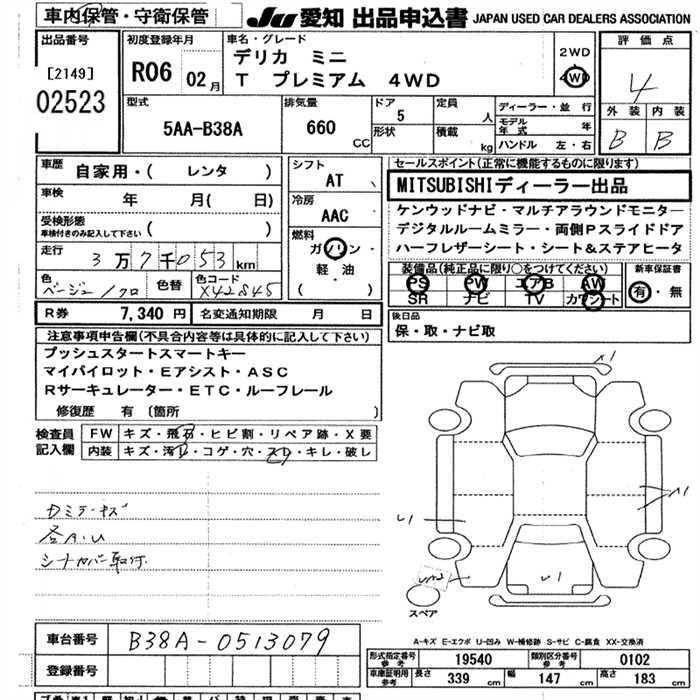 車内保管・守衛保管
JU 愛知 出品申込書 JAPAN USED CAR DEALERS ASSOCIATION
出品番号
[2149]
02523
初度登録年月
R06 02月
車名・グレード
デリカ ミニ
T プレミアム 4WD
2WD
4WD
評価点
4
外装 内装
B B
型式
5AA-B38A
排気量
660 CC
ドア
5
形状
定員 人
積載 kg
ディーラー・並行
モデル年式 年
ハンドル 左・右
車歴
自家用・( レンタ )
車検 年 月( 日)
受検形態
車検付きのみ記入して下さい ( )
走行
3万7千053km
色
ベージュ/クロ
色替
色コード
X42845
シフト
AT
冷房
AAC
燃料
ガソリン・
軽・油
( )
セールスポイント(正常に機能するものに限ります)
MITSUBISHIディーラー出品
ケンウッドナビ・マルチアラウンドモニター
デジタルルームミラー・両側Pスライドドア
ハーフレザーシート・シート&ステアヒータ
装備品(純正品に限り○をつけてください)
PS PW エアB AW
SR ナビ TV カワシート
新車保証書
有・無
R券 7,340 円
名変通知期限 月 日
後日品
保・取・ナビ取
注意事項申告欄(不具合内容等は具体的に記入して下さい)
プッシュスタートスマートキー
マイパイロット・Eアシスト・ASC
Rサーキュレーター・ETC・ルーフレール
修復歴 有 (箇所 )
検査員記入欄
FW キズ・飛石・ヒビ割・リペア跡・X要
内装 キズ・汚れ・コゲ・穴・スレ・キレ・破レ
各A.U
シートカバー取付
A1
A1
U1
U1
スペア
A-キズ E-エクボ U-凹み W-補修跡 S-サビ C-腐食 XX-交換済
車台番号
B38A-0513079
登録番号
形式指定番号 参考 19540
類別区分番号 参考 0102
車庫証明用 参考 長さ 339 cm 幅 147 cm 高さ 183 cm